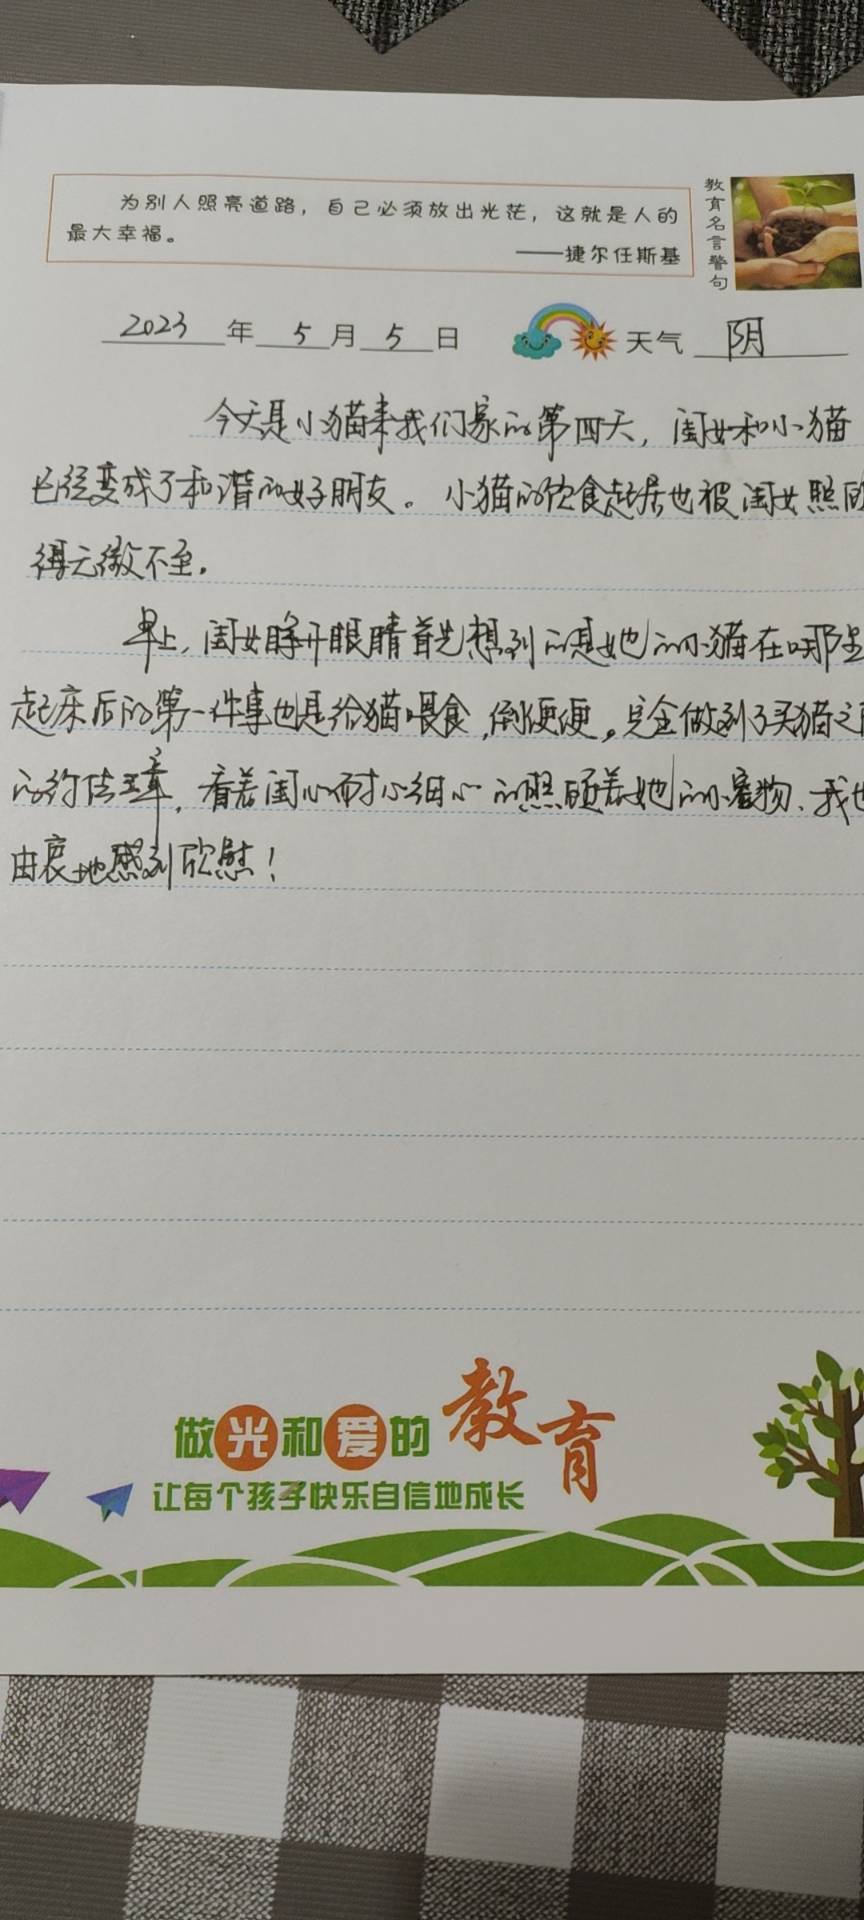 为别人照亮道路，自己必须放出光茫，这就是人的
最大幸福。
——捷尔任斯基
教育名言警句
2023年5月5日 天气 阴
今天是小猫来我们家的第四天，闺女和小猫
已经变成了和谐的好朋友。小猫的饮食起居也被闺女照顾
得无微不至。
早上，闺女睁开眼睛首先想到的是她的小猫在哪里
起床后的第一件事也是给猫喂食，倒便便。完全做到了买猫之
的约法三章，看着闺心耐心细心的照顾着她的小宠物、我也
由衷地感到欣慰！
做光和爱的教育
让每个孩子快乐自信地成长